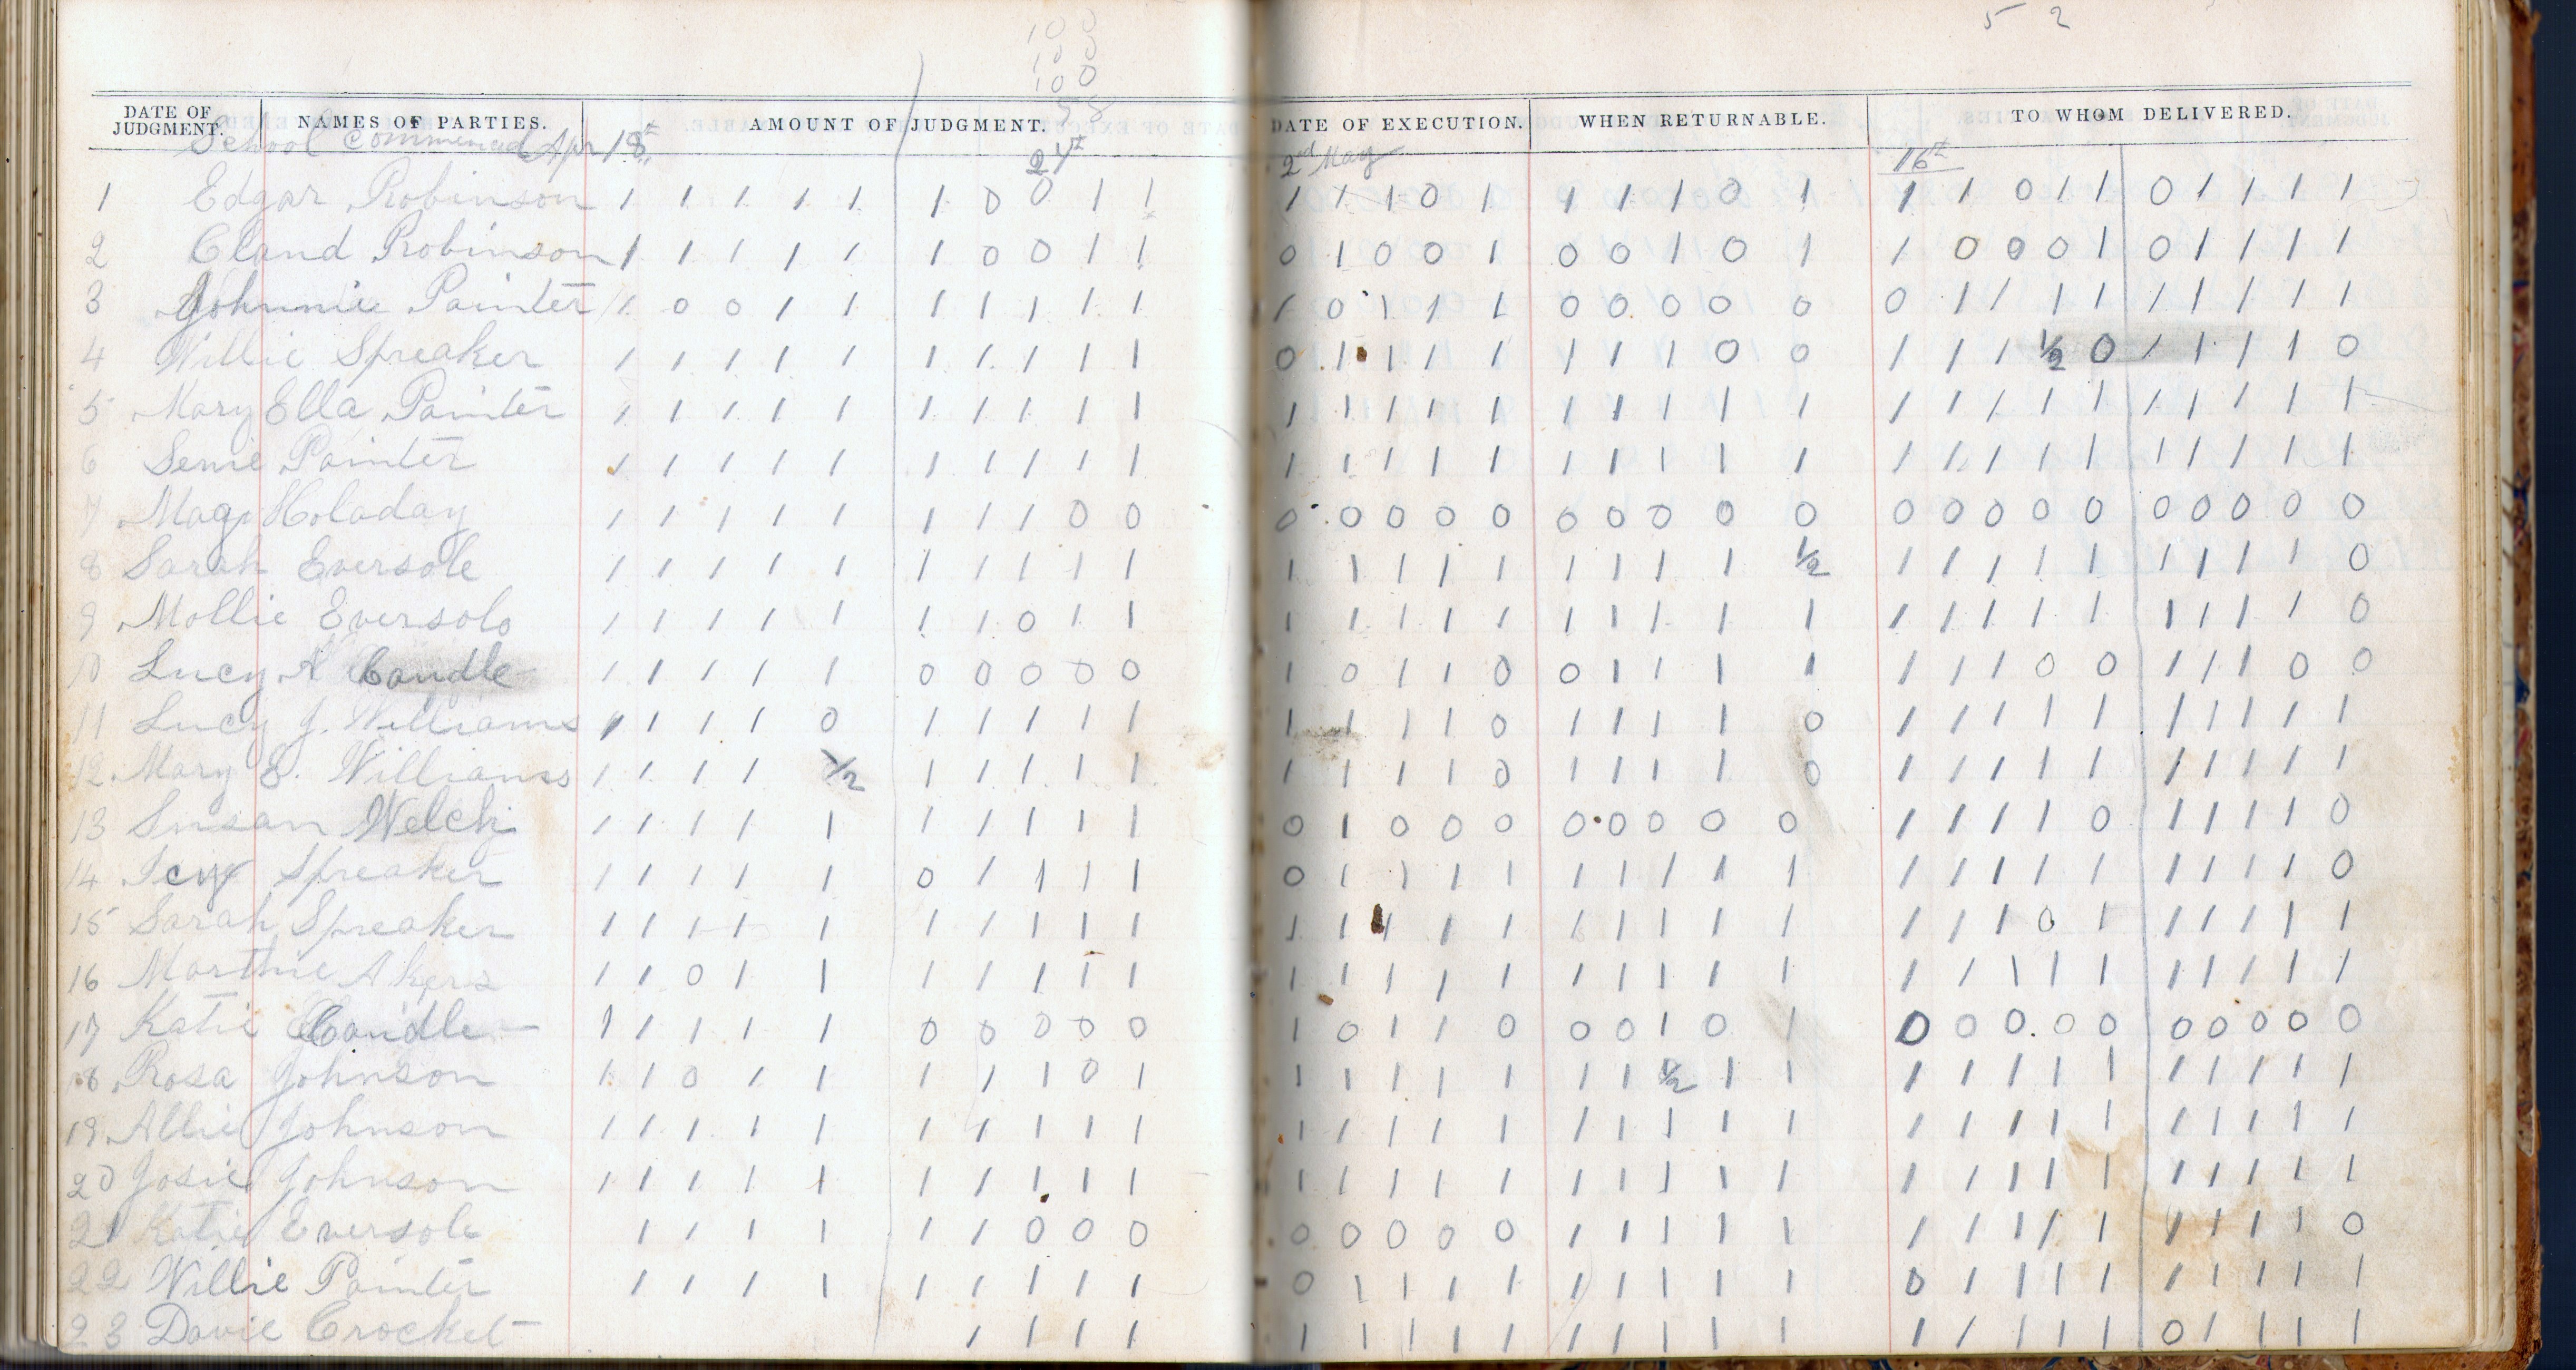 10 0
10 0
10 0
5 2
DATE OF JUDGMENT. NAMES OF PARTIES. AMOUNT OF JUDGMENT. DATE OF EXECUTION. WHEN RETURNABLE. TO WHOM DELIVERED.
School Commenced Apr 18th 24th 2nd May 16th
1 Edgar Robinson 1 1 1 1 1 1 0 0 1 1 1 1 1 0 1 1 1 1 0 1 1 1 0 1 1 0 1 1 1 1
2 Claud Robinson 1 1 1 1 1 1 0 0 1 1 0 1 0 0 1 0 0 1 0 1 1 0 0 0 1 0 1 1 1 1
3 Johnnie Painter 1 0 0 1 1 1 1 1 1 1 1 0 1 1 1 0 0 0 0 0 0 1 1 1 1 1 1 1 1 1
4 Willie Spreaker 1 1 1 1 1 1 1 1 1 1 0 1 1 1 1 1 1 1 0 0 1 1 1 1/2 0 1 1 1 1 0
5 Mary Ella Painter 1 1 1 1 1 1 1 1 1 1 1 1 1 1 1 1 1 1 1 1 1 1 1 1 1 1 1 1 1 1
6 Senie Painter 1 1 1 1 1 1 1 1 1 1 1 1 1 1 1 1 1 1 1 1 1 1 1 1 1 1 1 1 1 1
7 Mag Holaday 1 1 1 1 1 1 1 1 0 0 0 0 0 0 0 0 0 0 0 0 0 0 0 0 0 0 0 0 0 0
8 Sarah Eversole 1 1 1 1 1 1 1 1 1 1 1 1 1 1 1 1 1 1 1 1/2 1 1 1 1 1 1 1 1 1 0
9 Mollie Eversole 1 1 1 1 1 1 1 0 1 1 1 1 1 1 1 1 1 1 1 1 1 1 1 1 1 1 1 1 1 0
10 Lucy A Caudle 1 1 1 1 1 0 0 0 0 0 1 0 1 1 0 0 1 1 1 1 1 1 1 0 0 1 1 1 0 0
11 Lucy J. Williams 1 1 1 1 0 1 1 1 1 1 1 1 1 1 0 1 1 1 1 0 1 1 1 1 1 1 1 1 1 1
12 Mary E. Williams 1 1 1 1 1/2 1 1 1 1 1 1 1 1 1 0 1 1 1 1 0 1 1 1 1 1 1 1 1 1 1
13 Susan Welch 1 1 1 1 1 1 1 1 1 1 0 1 0 0 0 0 0 0 0 0 1 1 1 1 0 1 1 1 1 0
14 Icy Spreaker 1 1 1 1 1 0 1 1 1 1 0 1 1 1 1 1 1 1 1 1 1 1 1 1 1 1 1 1 1 0
15 Sarah Spreaker 1 1 1 1 1 1 1 1 1 1 1 1 1 1 1 1 1 1 1 1 1 1 1 0 1 1 1 1 1 1
16 Marthie Akers 1 1 0 1 1 1 1 1 1 1 1 1 1 1 1 1 1 1 1 1 1 1 1 1 1 1 1 1 1 1
17 Katie Caudle 1 1 1 1 1 0 0 0 0 0 1 0 1 1 0 0 0 1 0 1 0 0 0 0 0 0 0 0 0 0
18 Rosa Johnson 1 1 0 1 1 1 1 1 0 1 1 1 1 1 1 1 1 1/2 1 1 1 1 1 1 1 1 1 1 1 1
19 Allie Johnson 1 1 1 1 1 1 1 1 1 1 1 1 1 1 1 1 1 1 1 1 1 1 1 1 1 1 1 1 1 1
20 Josie Johnson 1 1 1 1 1 1 1 1 1 1 1 1 1 1 1 1 1 1 1 1 1 1 1 1 1 1 1 1 1 1
21 Katie Eversole 1 1 1 1 1 1 0 0 0 0 0 0 0 0 1 1 1 1 1 1 1 1 1 1 1 1 1 1 0
22 Willie Painter 1 1 1 1 1 1 1 1 1 0 1 1 1 1 1 1 1 1 1 0 1 1 1 1 1 1 1 1 1
23 Davie Crocket 1 1 1 1 1 1 1 1 1 1 1 1 1 1 1 1 1 1 1 0 1 1 1 1